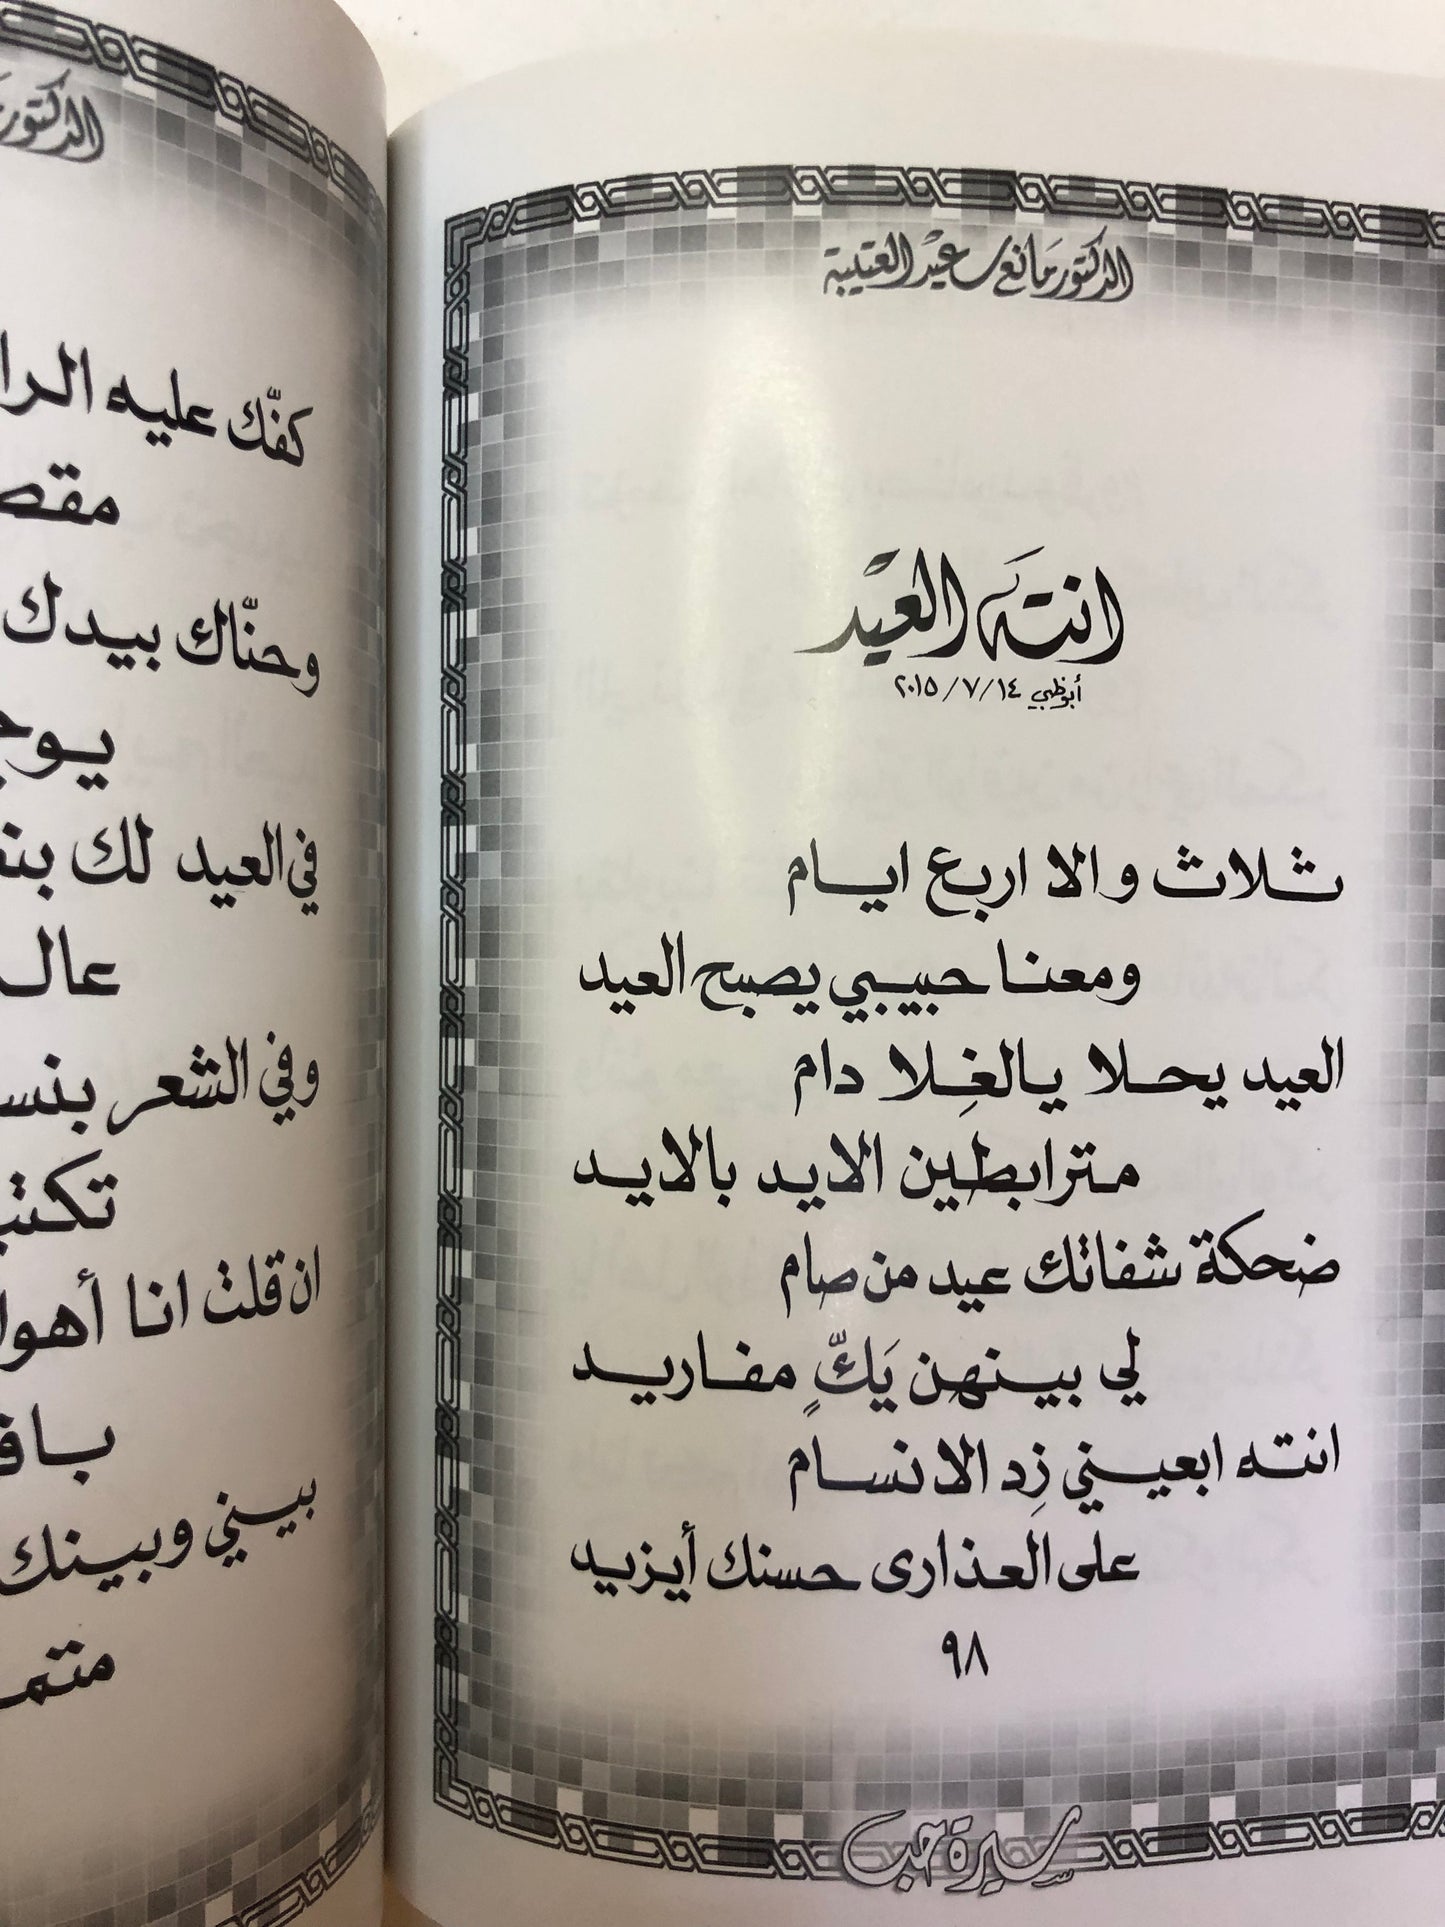 الدكتور مانع سعيد العتيبة
انتَه العيد
أبوظبي ١٤/٧/٢٠١٥
ثلاث والا اربع ايام
ومعنا حبيبي يصبح العيد
العيد يحلا يالغِلا دام
مترابطين الايد بالايد
ضحكة شفاتك عيد من صام
لي بينهن يَكٍّ مفاريد
انته ابعيني زِد الانسام
على العذارى حسنك أيزيد
٩٨
سيرة حب
الدكتور
كفّك عليه
وحنّاك بيدك
في العيد لك
وفي الشعر
ان قلت انا
بيني وبينك